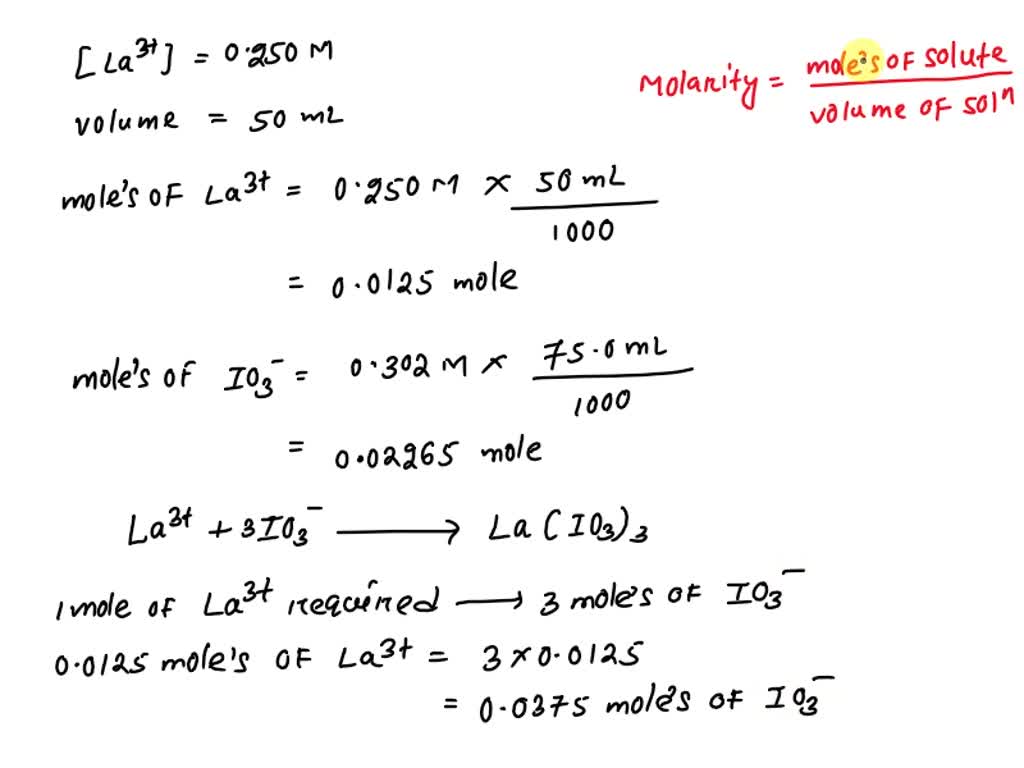 [La³⁺] = 0.250 M
volume = 50 mL
Molarity = mole's of solute / volume of solⁿ
mole's of La³⁺ = 0.250 M × 50 mL / 1000
= 0.0125 mole
mole's of IO₃⁻ = 0.302 M × 75.0 mL / 1000
= 0.02265 mole
La³⁺ + 3IO₃⁻ ⟶ La(IO₃)₃
1 mole of La³⁺ required ⟶ 3 mole's of IO₃⁻
0.0125 mole's of La³⁺ = 3 × 0.0125
= 0.0375 mole's of IO₃⁻